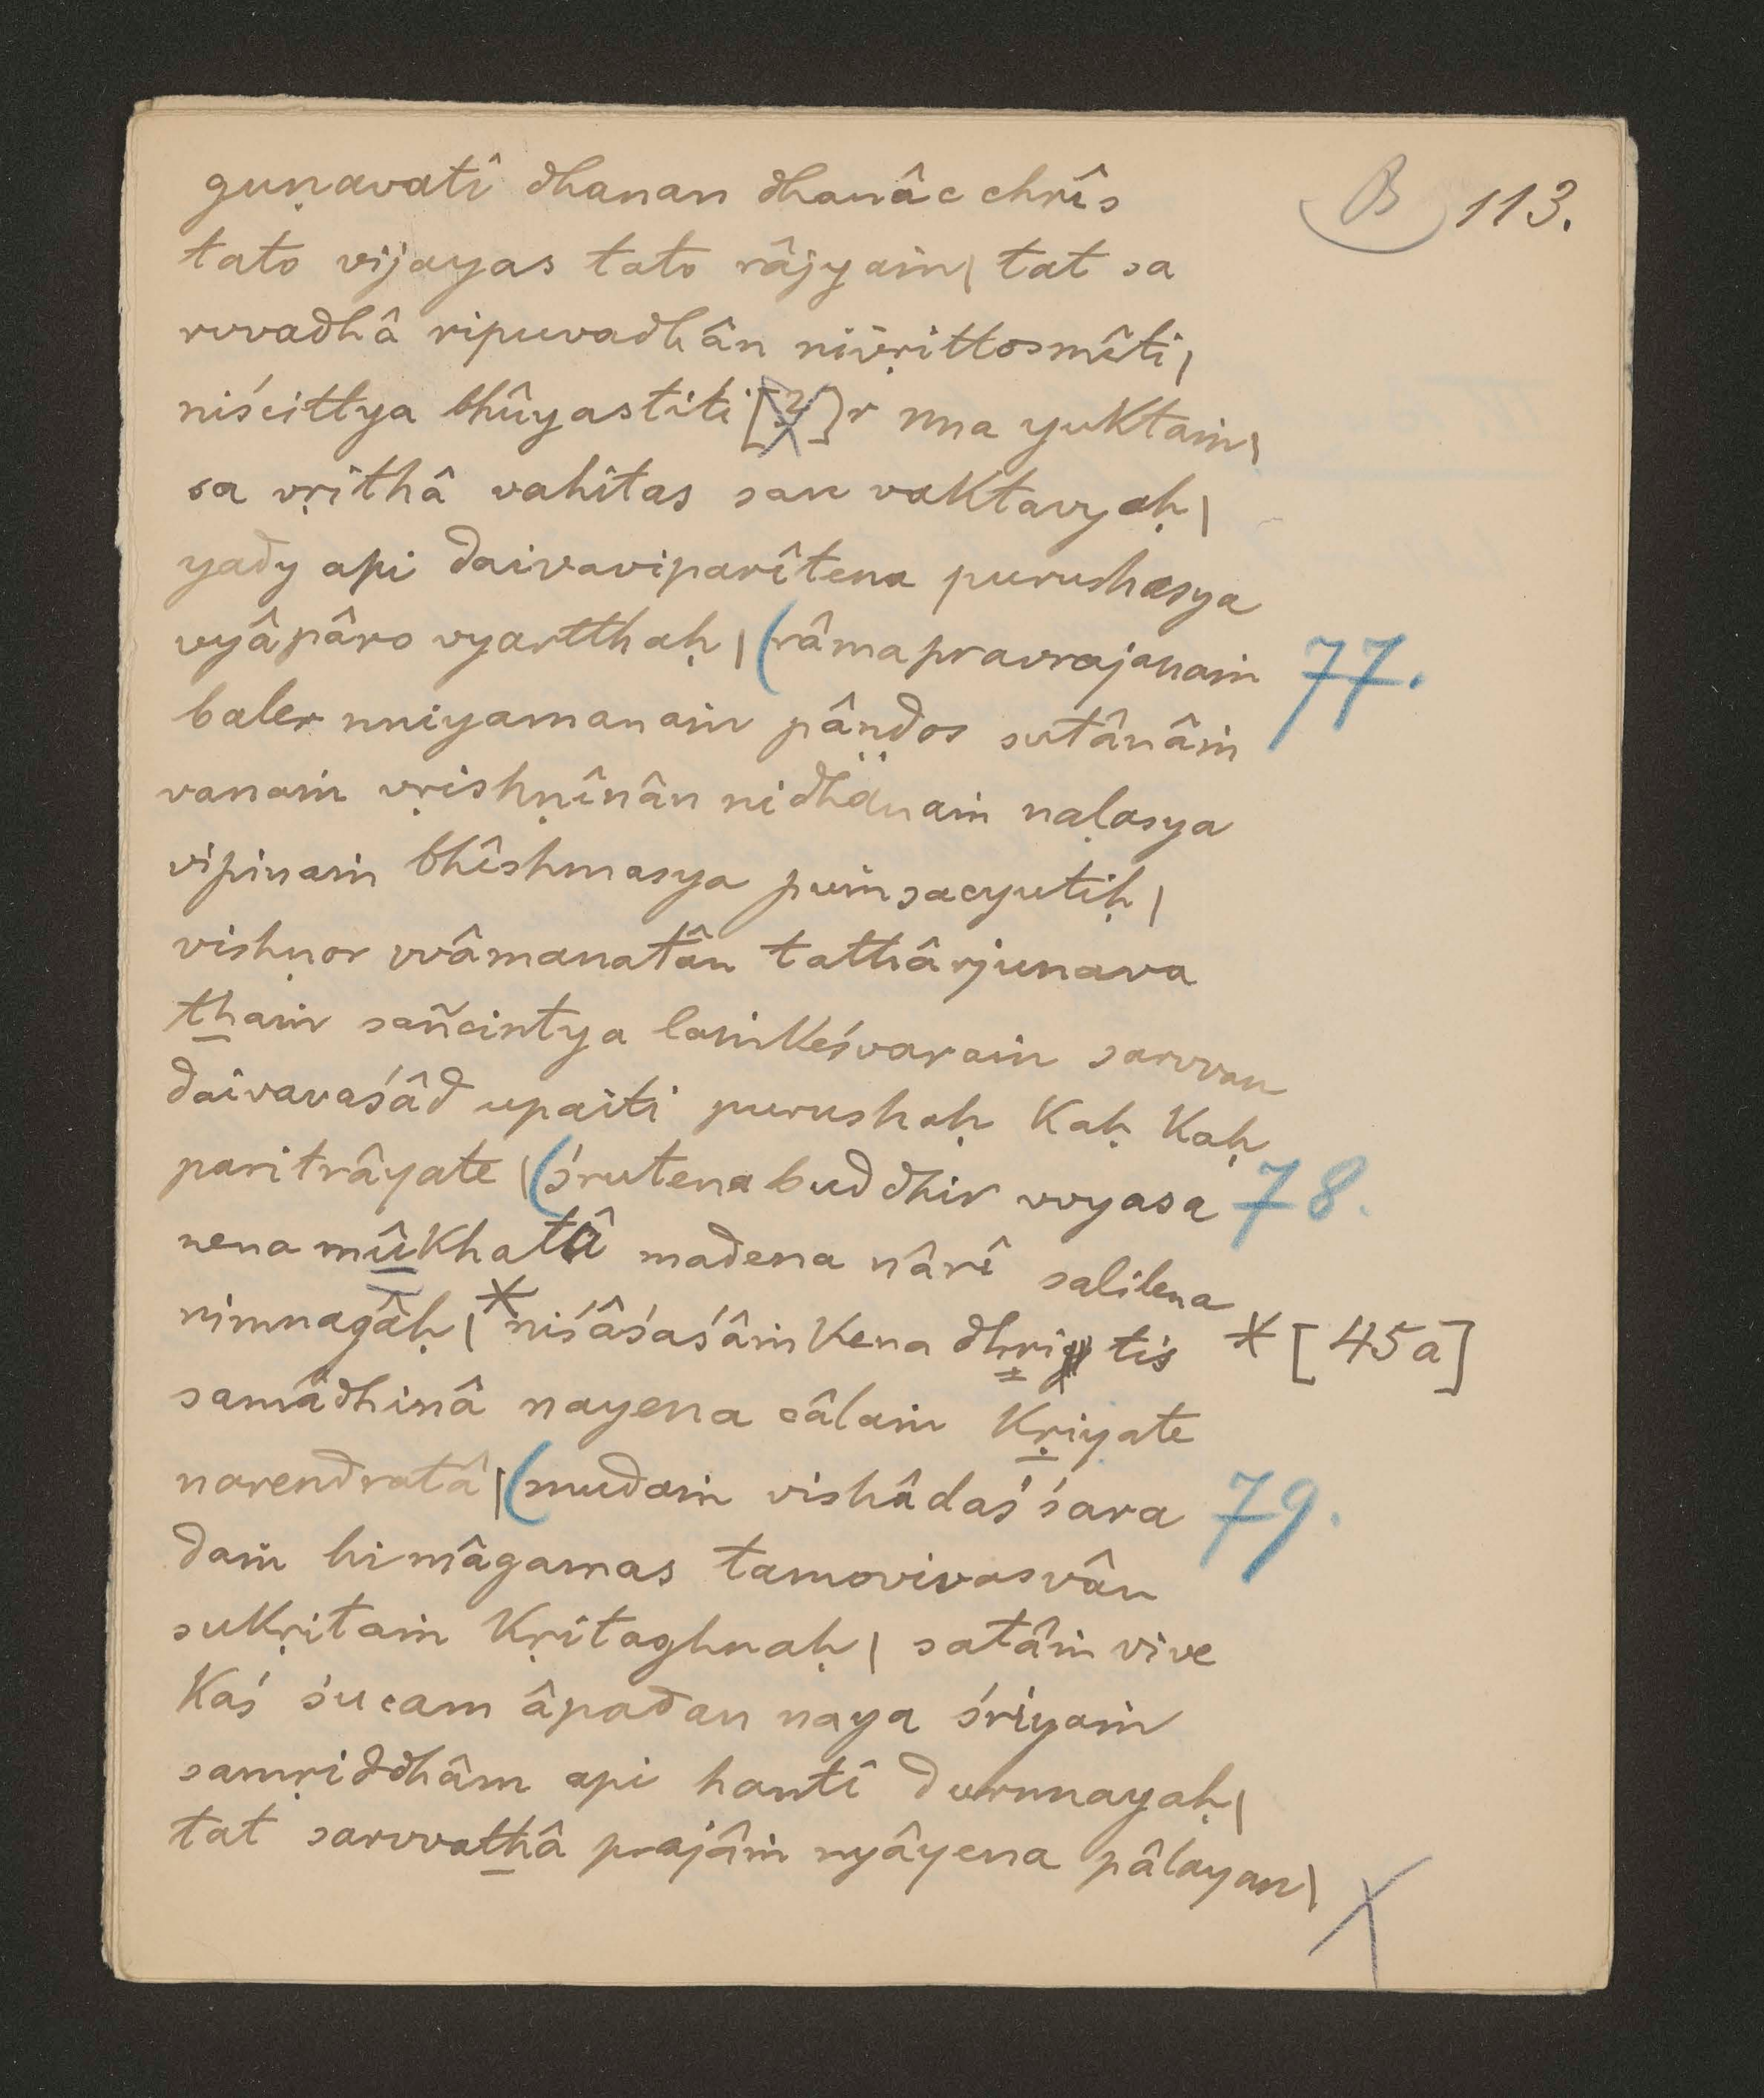 B 113.
guṇavatî dhanan dhanâc chrîs
tato vijayas tato râjyaṁ| tat sa
rvvadhâ ripuvadhân nivṛittosmîti|
niścittya bhûyastiti[?]r nna yuktaṁ|
sa vṛithâ vahitas san vaktavyaḥ|
yady api daivaviparîtena purushasya
vyâpâro vyartthaḥ | (râmapravrajanaṁ 77.
baler nniyamanaṁ pâṇḍos sutânâṁ
vanaṁ vṛishṇînân nidhänaṁ naḷasya
vipinaṁ bhîshmasya puṁsacyutiḥ |
vishṇor vvâmanatân tathârjunava
thaṁ sañcintya laṁkeśvaraṁ sarvvan
daivavaśâd upaiti purushaḥ Kaḥ Kaḥ
paritrâyate | (śrutena buddhir vvyasa 78.
nena mûkhatâ madena nârî salilena
nimnagâḥ | * niśâśaśâṁkena dhri tis * [45a]
samâdhinâ nayena câlaṁ Kṛiyate
narendratâ | (mudaṁ vishâdaś śara 79.
daṁ himâgamas tamovivasvân
sukṛitaṁ Kṛitaghnaḥ | satâṁ vive
Kaś śucam âpadan naya śriyaṁ
samṛiddhâm api hantî durnnayaḥ |
tat sarvvathâ prajâṁ nyâyena pâlayan |
X